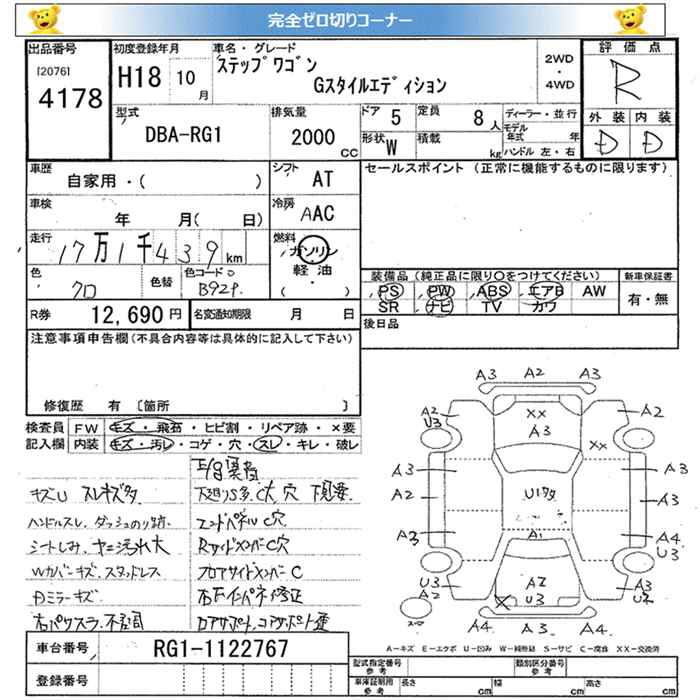 完全ゼロ切りコーナー
出品番号
[2076]
4178
初度登録年月
H18 10月
車名・グレード
ステップワゴン
Gスタイルエディション
2WD
・
4WD
評価点
R
型式
DBA-RG1
排気量
2000 CC
ドア 5
定員 8人
形状 W
積載 kg
ディーラー・並行
モデル年式 年
ハンドル左・右
外装 内装
D D
車歴
自家用・( )
シフト AT
車検
年 月( 日)
冷房 AAC
走行
17万1千439km
燃料
ガソリン
軽油
( ・ )
色
クロ
色替
色コード
B92P
R券 12,690円
名変通知期限 月 日
セールスポイント(正常に機能するものに限ります)
装備品(純正品に限り○をつけてください)
新車保証書
PS PW ABS エアB AW
SR ナビ TV カワ
有・無
後日品
注意事項申告欄(不具合内容等は具体的に記入して下さい)
修復歴 有 [箇所 ]
検査員記入欄
FW キズ・飛石・ヒビ割・リペア跡・×要
内装 キズ・汚レ・コゲ・穴・スレ・キレ・破レ
キズU スレキズ多
ハンドルスレ、ダッシュのり跡、
シートしみ、ヤニ汚れ大
Wカバーキズ、スタッドレス
Dミラーキズ
下廻りS多、C大、穴
エンドパネルC穴
RサイドメンバーC穴
フロアサイドメンバーC
A3 A2 A3
A2
U3
XX
A3
A2
XX
A3
A2
A3
U1多
A3
A3
A3
A1
A4
U3
U3
A2
A2
U3
A3
U2
A4 A3 A4
A-キズ E-エクボ U-凹み W-補修跡 S-サビ C-腐食 XX-交換済
車台番号 RG1-1122767
登録番号
型式指定番号
参考
類別区分番号
参考
車庫証明用
参考
長さ cm
幅 cm
高さ cm